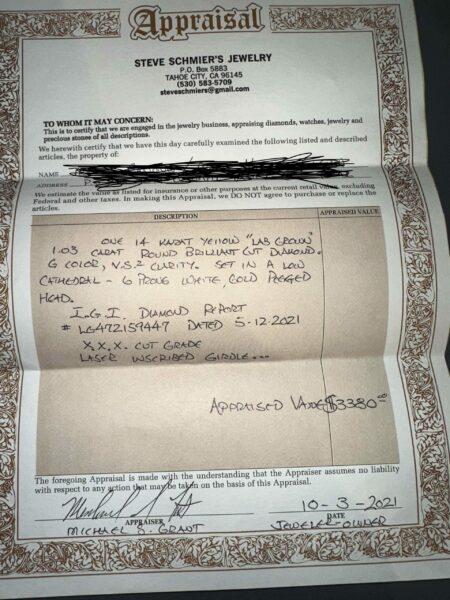 Appraisal
STEVE SCHMIER'S JEWELRY
P.O. Box 5883
TAHOE CITY, CA 96145
(530) 583-5709
steveschmiers@gmail.com
TO WHOM IT MAY CONCERN:
This is to certify that we are engaged in the jewelry business, appraising diamonds, watches, jewelry and
precious stones of all descriptions.
We herewith certify that we have this day carefully examined the following listed and described
articles, the property of:
NAME
ADDRESS
We estimate the value as listed for insurance or other purposes at the current retail value, excluding
Federal and other taxes. In making this Appraisal, we DO NOT agree to purchase or replace the
articles.
DESCRIPTION APPRAISED VALUE
ONE 14 KARAT YELLOW "LAB GROWN"
1.03 CARAT ROUND BRILLIANT CUT DIAMOND.
G COLOR, V.S.2 CLARITY. SET IN A LOW
CATHEDRAL - 6 PRONG WHITE GOLD PEGGED
HEAD.
I.G.I. DIAMOND REPORT
# LG472159447 DATED 5-12-2021
X.X.X. CUT GRADE
LASER INSCRIBED GIRDLE...
APPRAISED VALUE $3380.00
The foregoing Appraisal is made with the understanding that the Appraiser assumes no liability
with respect to any action that may be taken on the basis of this Appraisal.
10-3-2021
APPRAISER DATE
MICHAEL S. GRANT JEWELER-OWNER